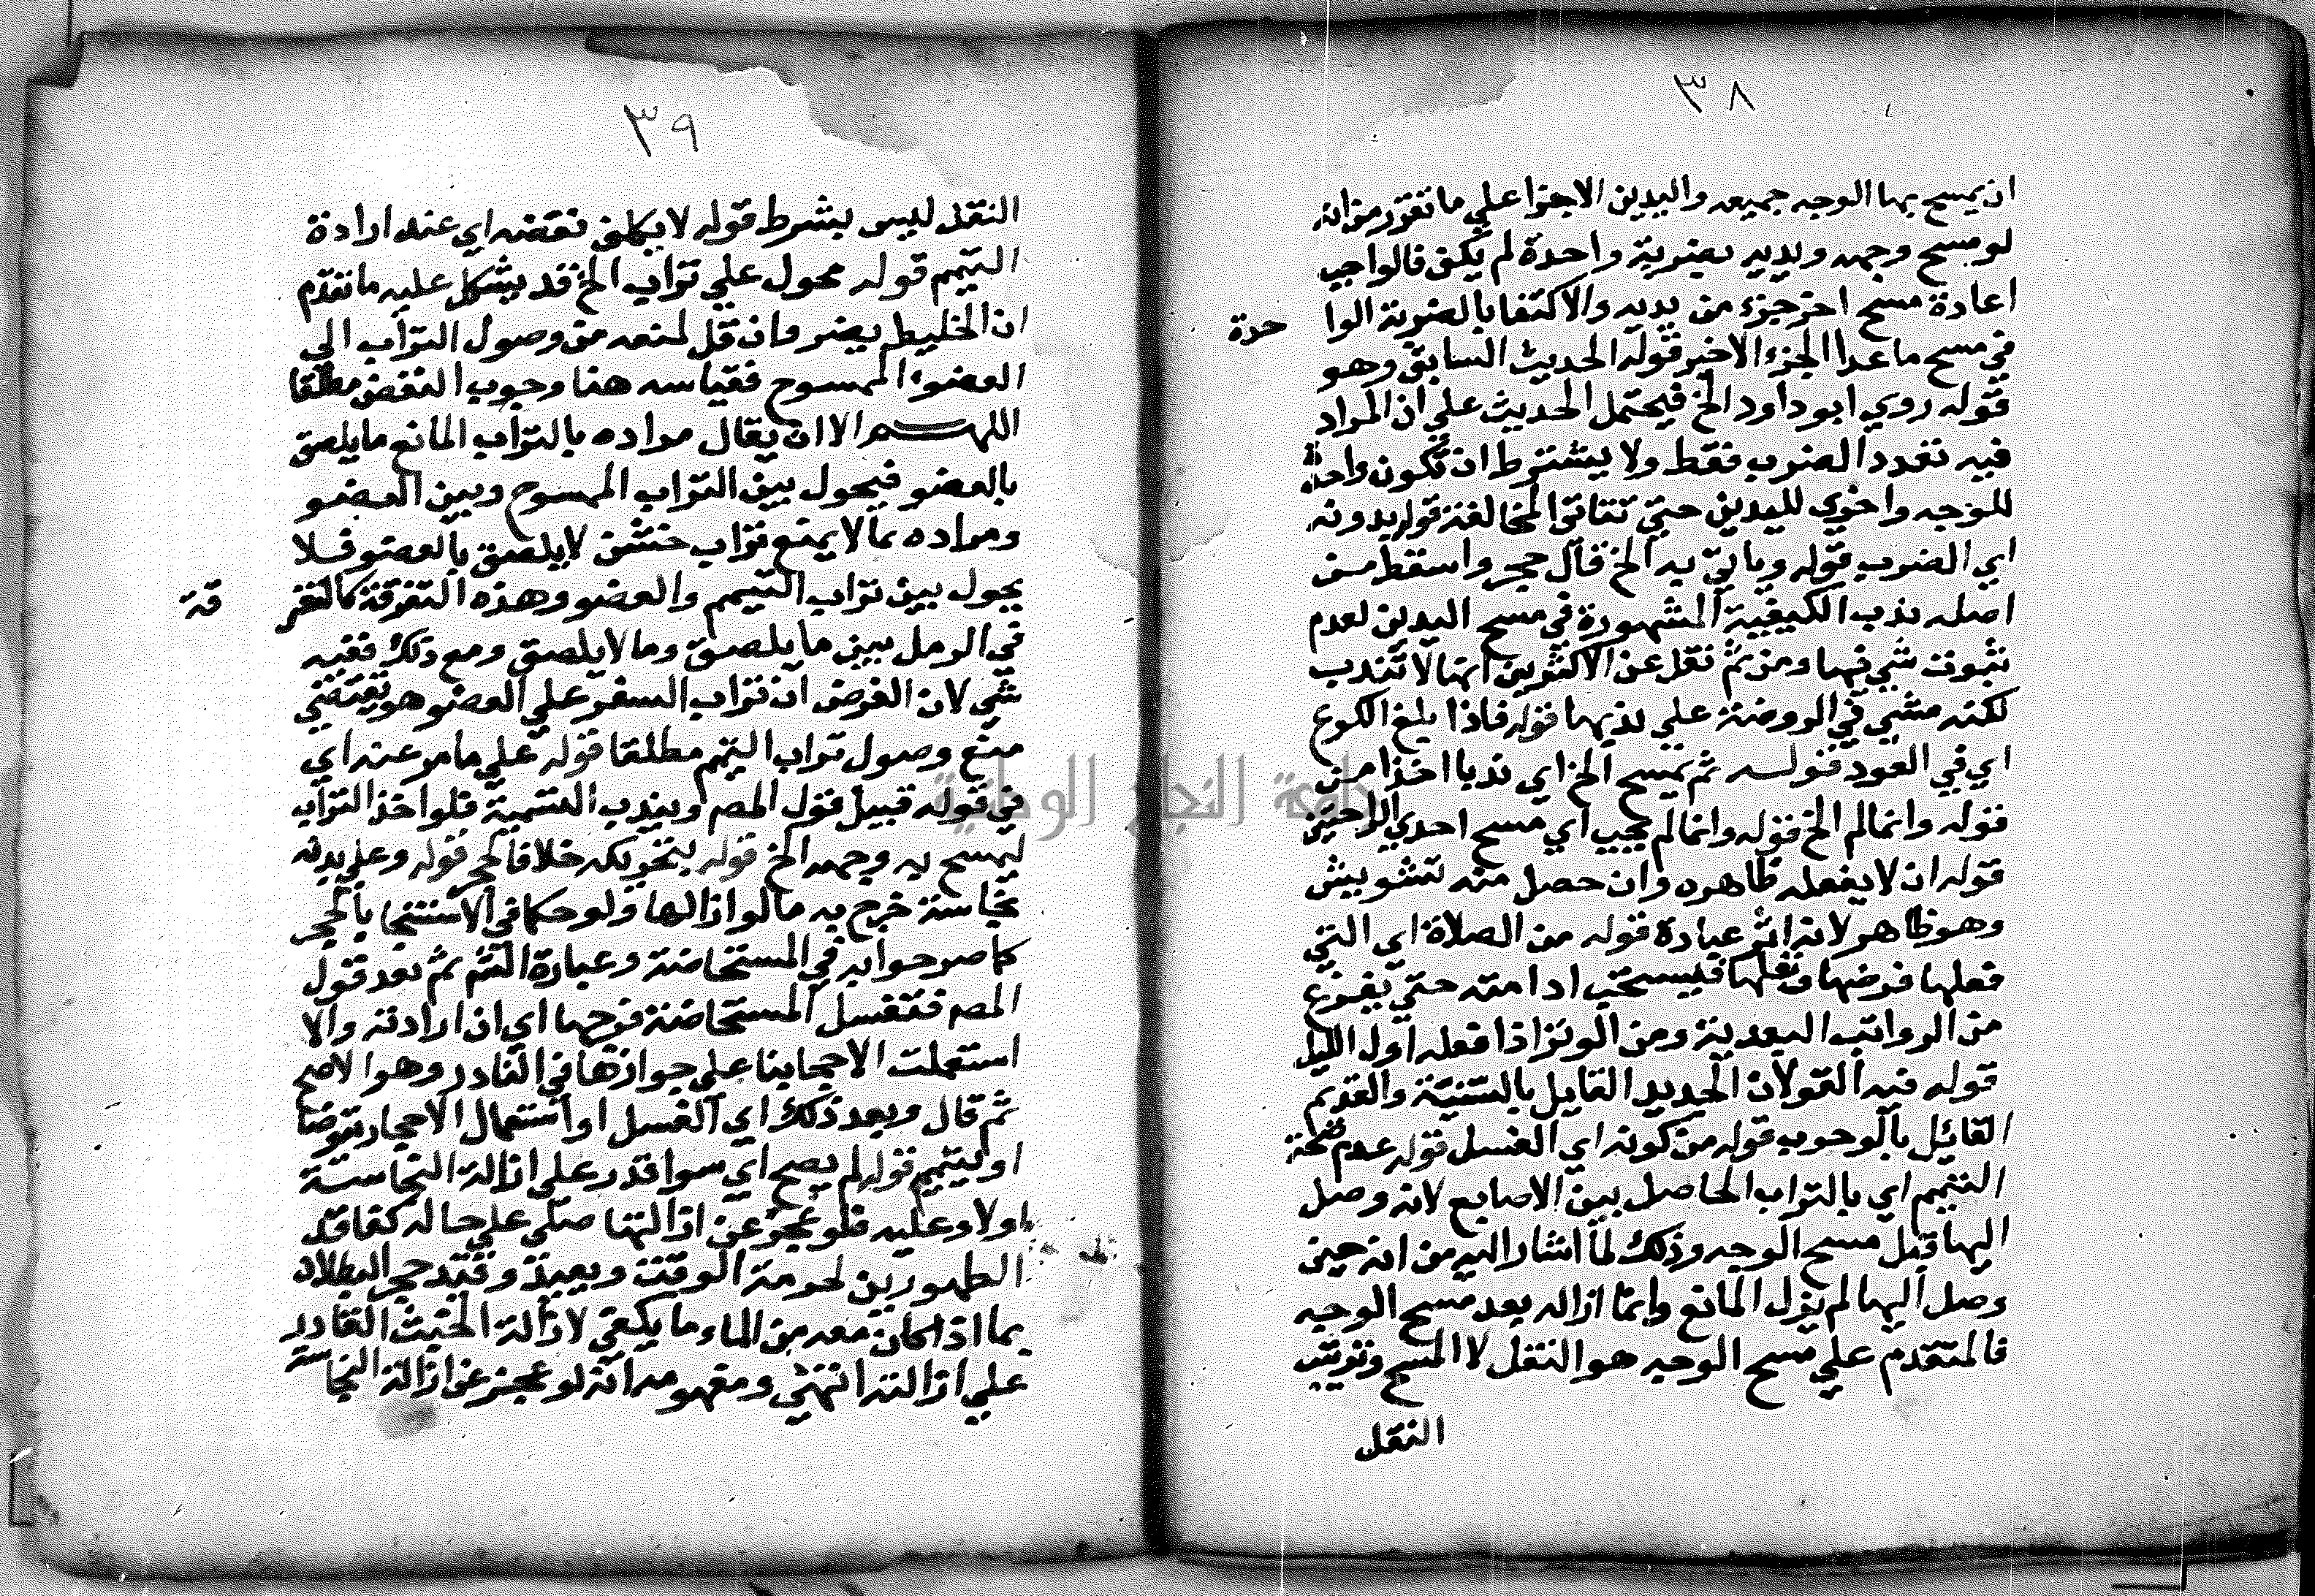 ٣٨
ان يمسح بها الوجه جميعه واليدين الاجزا علي ما تقرر من انه
لو مسح وجهه ويديه بضربة واحدة لم يكف فالواجب
اعادة مسح اخر جزء من يديه والاكتفا بالضربة الوا حدة
في مسح ما عدا الجزء الاخير قوله الحديث السابق وهو
قوله روي ابو داود الخ فيحتمل الحديث علي ان المراد
فيه تعدد الضرب فقط ولا يشترط ان تكون واحدة
للوجه واخري لليدين حتي تتاتي المخالفة قوله بدونه
اي الضرب قوله وياتي به الخ قال حجر واسقط من
اصله ندب الكيفية المشهورة في مسح اليدين لعدم
ثبوت شي فيها ومن ثم نقل عن الاكثرين انها لا تندب
لكنه مشي في الروضة علي ندبها قوله فاذا بلغ الكوع
اي في العود قوله ثم يمسح الخ اي ندبا اخذا من
قوله وانما لم الخ قوله وانما لم يجب اي مسح احدي الراحتين
قوله ان لا يفعله ظاهره وان حصل منه تشويش
وهو ظاهر لانه اثر عبادة قوله من الصلاة اي التي
فعلها فرضها ونفلها فيستحب ادامته حتي يفرغ
من الرواتب البعدية ومن الوتر اذا فعله اول الليل
قوله فيه القولان الجديد القايل بالسنية والقديم
القائل بالوجوب قوله من كونه اي الغسل قوله عدم صحة
التيمم اي بالتراب الحاصل بين الاصابع لانه وصل
اليها قبل مسح الوجه وذلك لما اشار اليه من انه حين
وصل اليها لم يزل المانع وانما ازاله بعد مسح الوجه
فالمتقدم علي مسح الوجه هو النقل لا المسح وترتيب
النقل
٣٩
النقل ليس بشرط قوله لا يكلف نقضه اي عند ارادة
التيمم قوله محول علي تراب الخ قد يشكل عليه ما تقدم
ان الخليط يضر وان قل لمنعه من وصول التراب الي
العضو الممسوح فقياسه هنا وجوب النقض مطلقا
اللهم الا ان يقال مراده بالتراب المانع ما يلصق
بالعضو فيحول بين التراب الممسوح وبين العضو
ومراده بما لا يمنع تراب خشن لا يلصق بالعضو فلا
يحول بين تراب التيمم والعضو وهذه التفرقة كالتفر قة
في الرمل بين ما يلصق وما لا يلصق ومع ذلك ففيه
شي لان الفرض ان تراب السفر علي العضو هو يقتضي
منع وصول تراب التيمم مطلقا قوله علي ما مر عنه اي
في قوله قبيل قول المصه ويندب التسمية فلو اخذ التراب
ليمسح به وجهه الخ قوله بتحويكه خلافا لحجر قوله وعلي بدنه
نجاسة خرج به ما لو ازالها ولو حكما في الاستنجا بالحجر
كما صر حوا به في المستحاضة وعبارة التم ثم بعد قول
المصه فتغسل المستحاضة فرجها اي ان ارادته والا
استعملت الاحجا بنا علي جوازها في النادر وهو الاصح
ثم قال وبعد ذلك اي الغسل او استعمال الاحجار تتوضا
او تتيمم قوله لم يصح اي سوا قدر علي ازالة النجاسة
اولا وعليه فلو عجز عن ازالتها صلي علي حاله كفاقد
الطهورين لحرمة الوقت ويعيد وقيد حجر البطلان
بما اذا كان معه من الماء ما يكفي لازالة الخبث القادر
علي ازالته انتهي ومفهومه انه لو عجز عن ازالة النجاسة
جامعة النجاح الوطنية